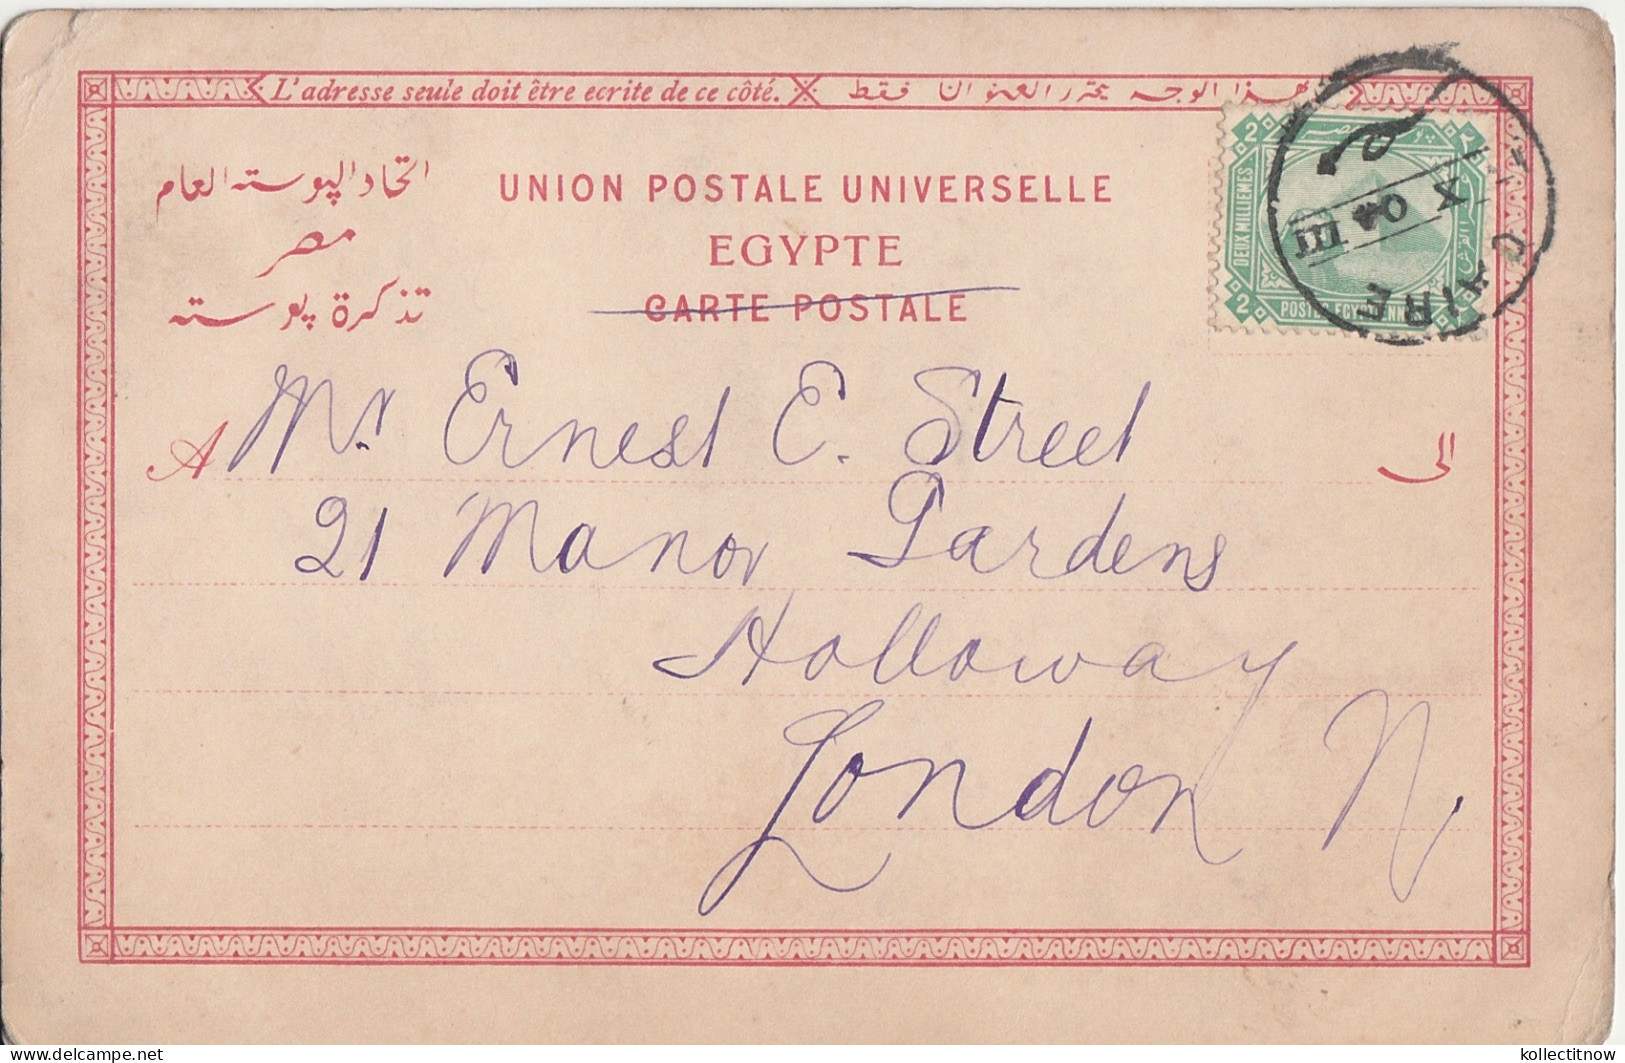 L'adresse seule doit être ecrite de ce côté.
بهذا الوجه يحرر العنوان فقط
اتحاد اليوسته العام
مصر
تذكرة بوسته
UNION POSTALE UNIVERSELLE
EGYPTE
CARTE POSTALE
2
DEUX MILLIEMES
2
2
X 04 III
CAIRE
A
الى
Mr. Ernest E. Street
21 Manor Gardens
Holloway
London N.
kollectitnow